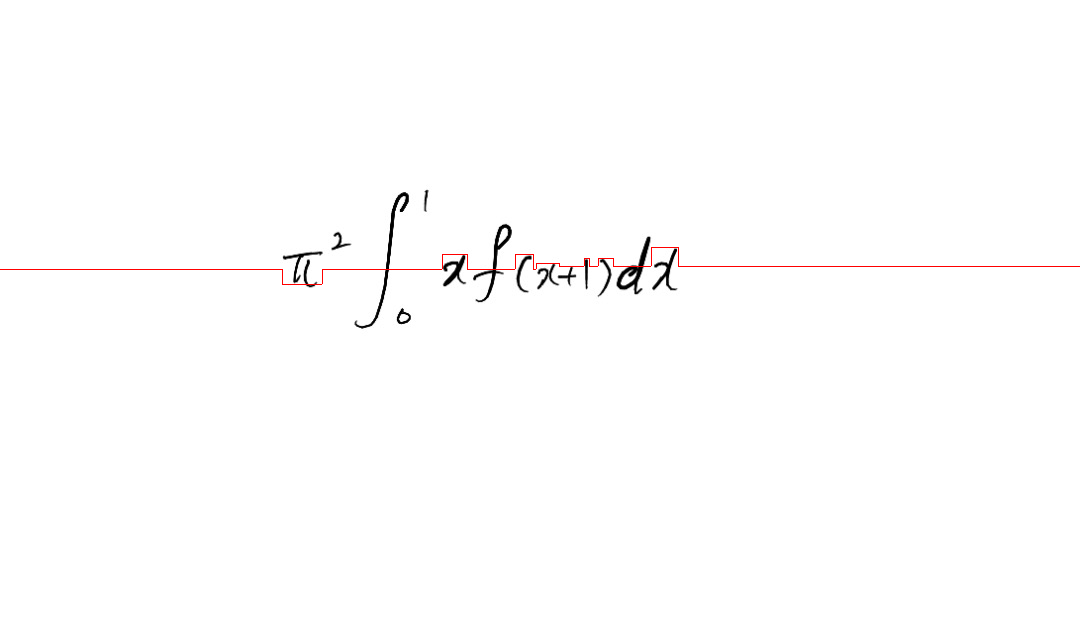 π² ∫₀¹ x f(x+1)dx